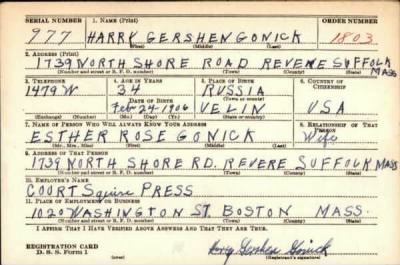 SERIAL NUMBER 1. NAME (Print) ORDER NUMBER
977 HARRY GERSHEN GONICK 1803
(First) (Middle) (Last)
2. ADDRESS (Print)
1739 NORTH SHORE ROAD REVERE SUFFOLK MASS
(Number and street or R. F. D. number) (Town) (County) (State)
3. TELEPHONE 4. AGE IN YEARS 5. PLACE OF BIRTH 6. COUNTRY OF CITIZENSHIP
1479 W 34 RUSSIA
DATE OF BIRTH (Town or county)
Feb 24 1906 VELIN USA
(Exchange) (Number) (Mo.) (Day) (Yr.) (State or country)
7. NAME OF PERSON WHO WILL ALWAYS KNOW YOUR ADDRESS 8. RELATIONSHIP OF THAT PERSON
ESTHER ROSE GONICK Wife
(Mr., Mrs., Miss) (First) (Middle) (Last)
9. ADDRESS OF THAT PERSON
1739 NORTH SHORE RD. REVERE SUFFOLK MASS
(Number and street or R. F. D. number) (Town) (County) (State)
10. EMPLOYER'S NAME
COURT Squire PRESS
11. PLACE OF EMPLOYMENT OR BUSINESS
1020 WASHINGTON ST. BOSTON MASS.
(Number and street or R. F. D. number) (Town) (County) (State)
I AFFIRM THAT I HAVE VERIFIED ABOVE ANSWERS AND THAT THEY ARE TRUE.
REGISTRATION CARD
D. S. S. Form 1 Harry Gershen Gonick
(Registrant's signature)